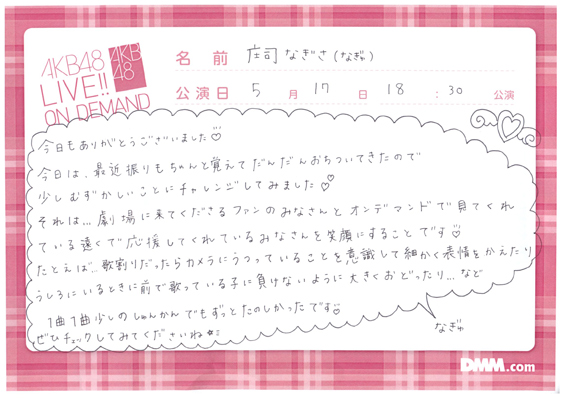 AKB48
LIVE!!
ON DEMAND
AKB
48
名前 庄司なぎさ(なぎゅ)
公演日 5月17日 18:30 公演
今日もありがとうございました♡
今日は、最近振りもちゃんと覚えてだんだんおちついてきたので
少しむずかしいことにチャレンジしてみました♡
それは…劇場に来てくださるファンのみなさんとオンデマンドで見てくれ
ている遠くで応援してくれているみなさんを笑顔にすることです♡
たとえば…歌割りだったらカメラにうつっていることを意識して細かく表情をかえたり
うしろにいるときに前で歌っている子に負けないように大きくおどったり…など
1曲1曲少しのしゅんかんでもずっとたのしかったです♡
ぜひチェックしてみてくださいね
なぎゅ
DMM.com